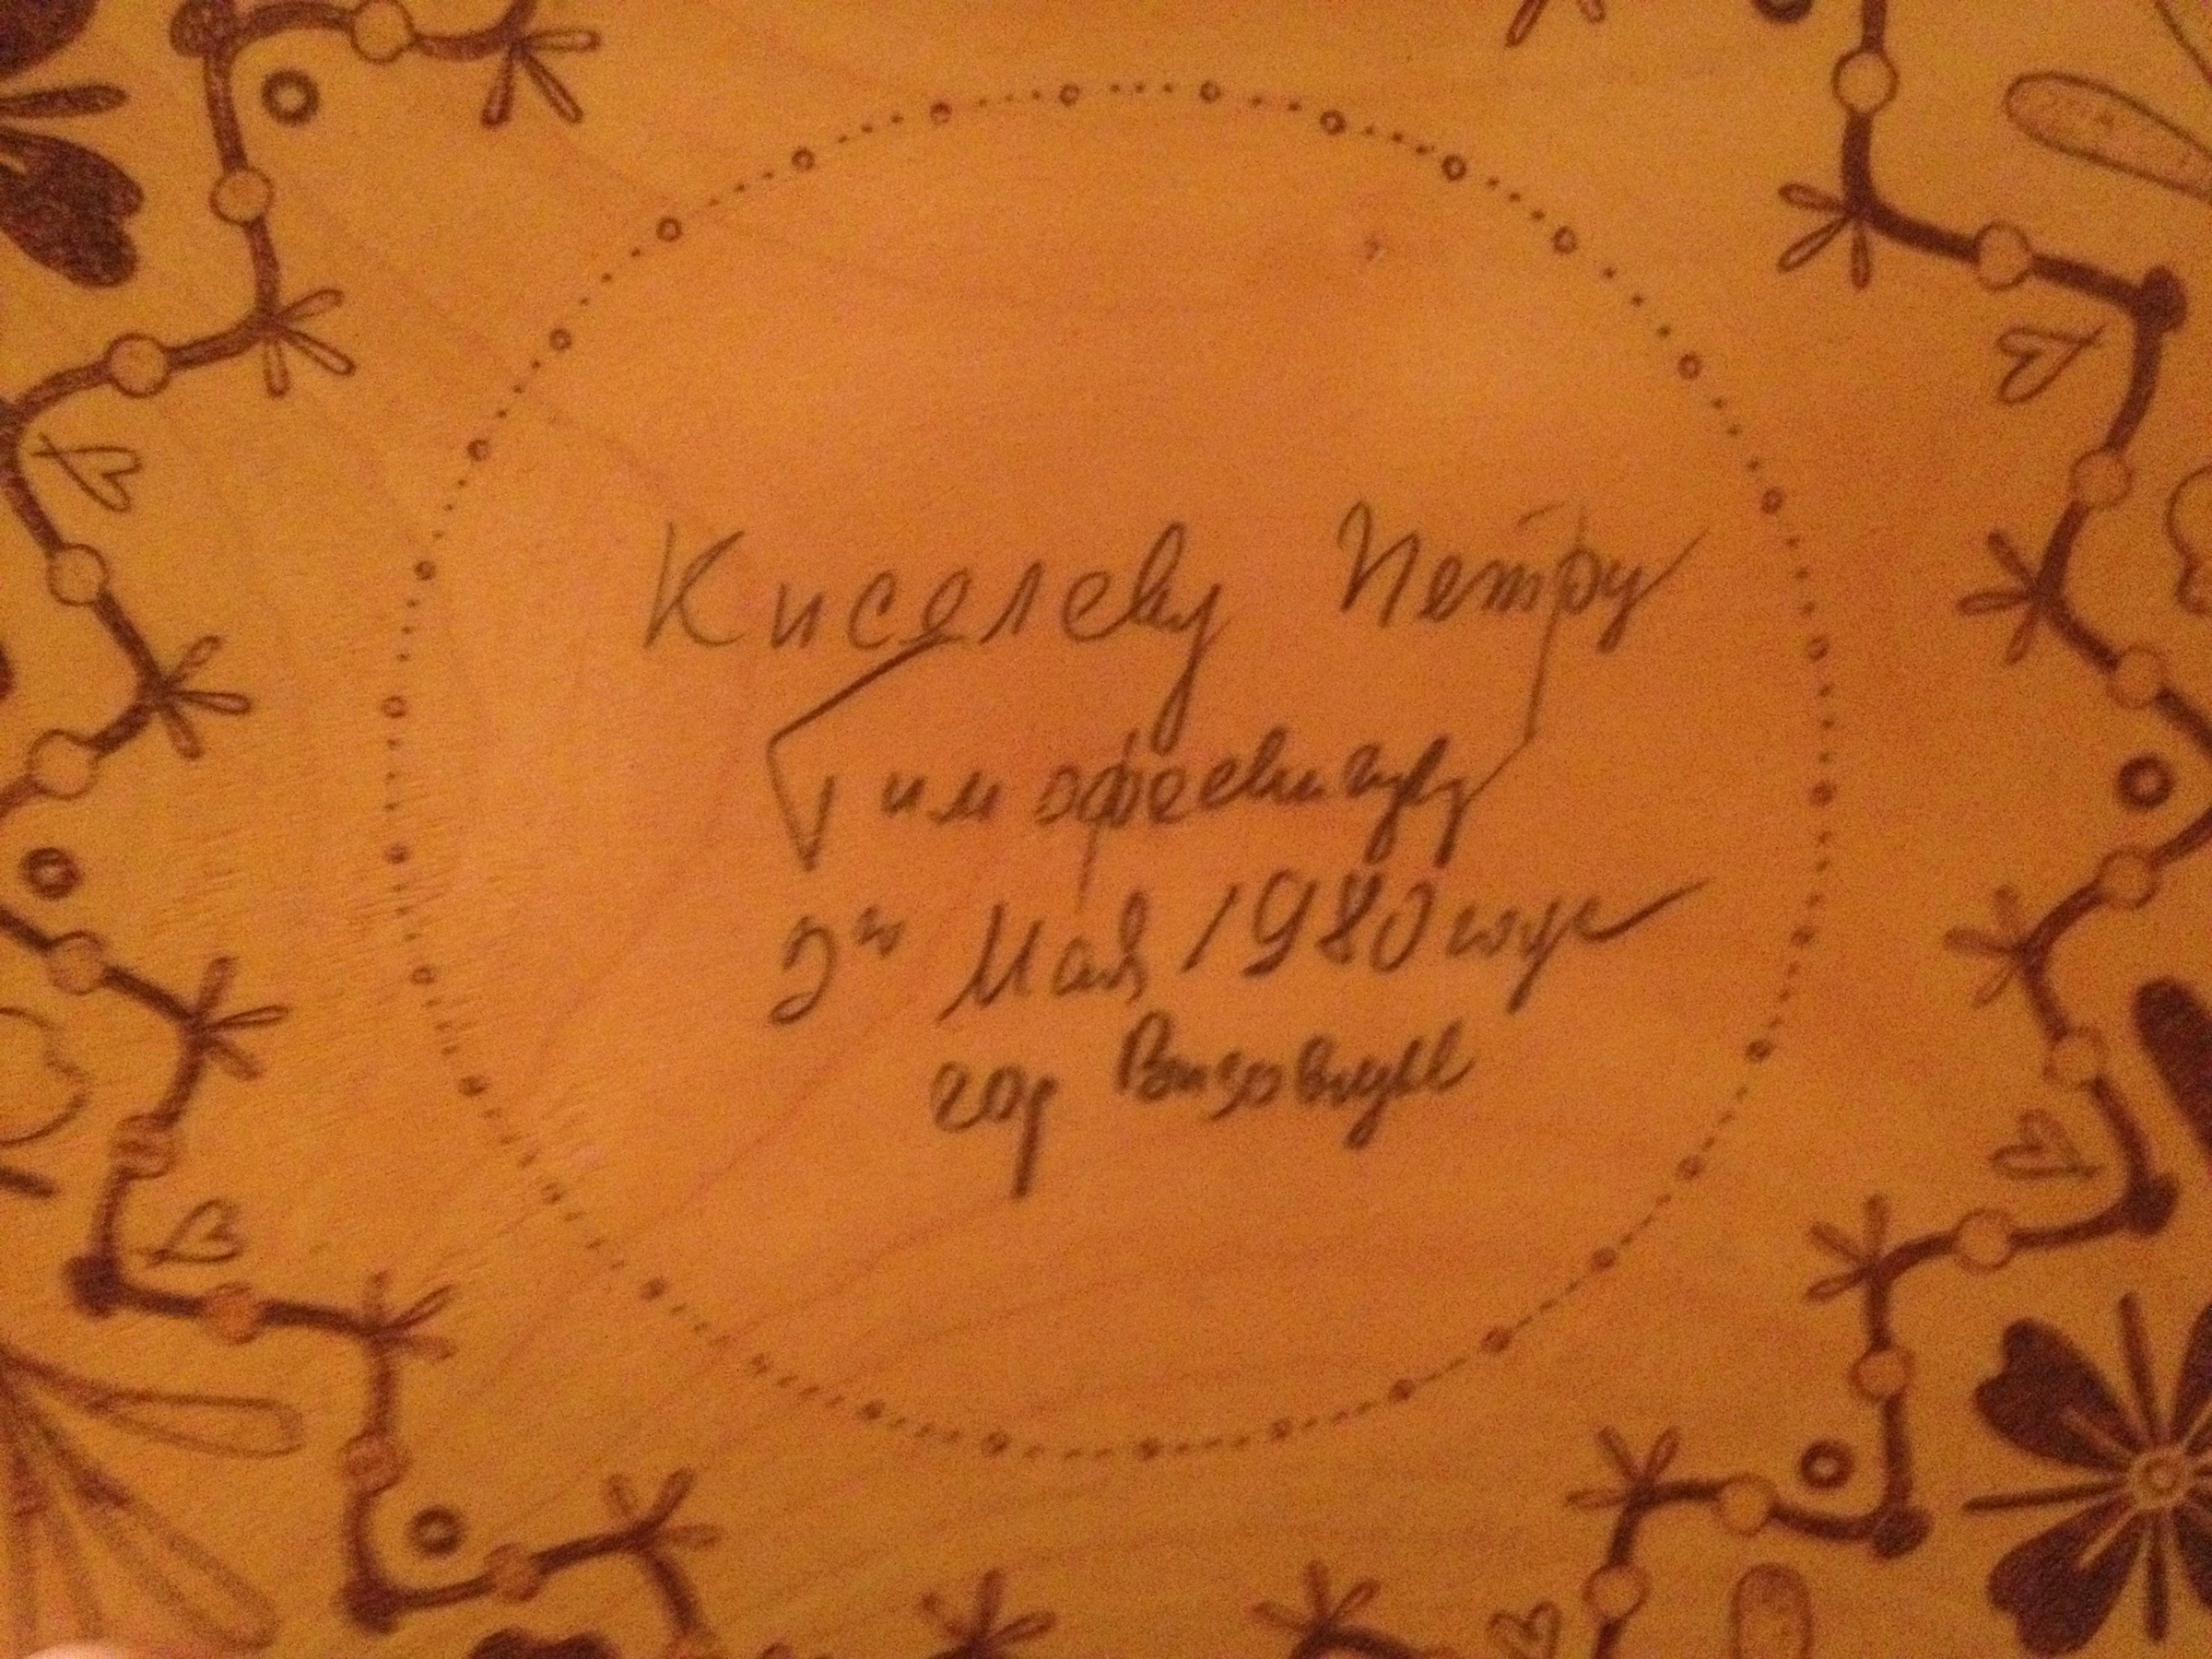 Киселеву Петру
Тимофеевичу
2го Мая 1980 года
гор